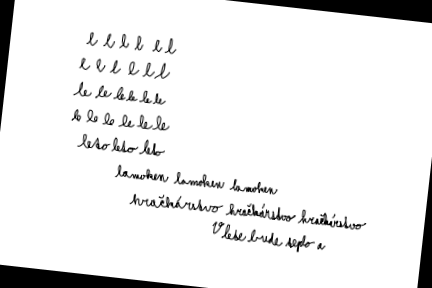 l l l l l l
l l l l l l
le le le le le le
le le le le le le
leto leto leto
lamohen lamohen lamohen
hračkárstvo hračkárstvo hračkárstvo
V lese bude teplo a